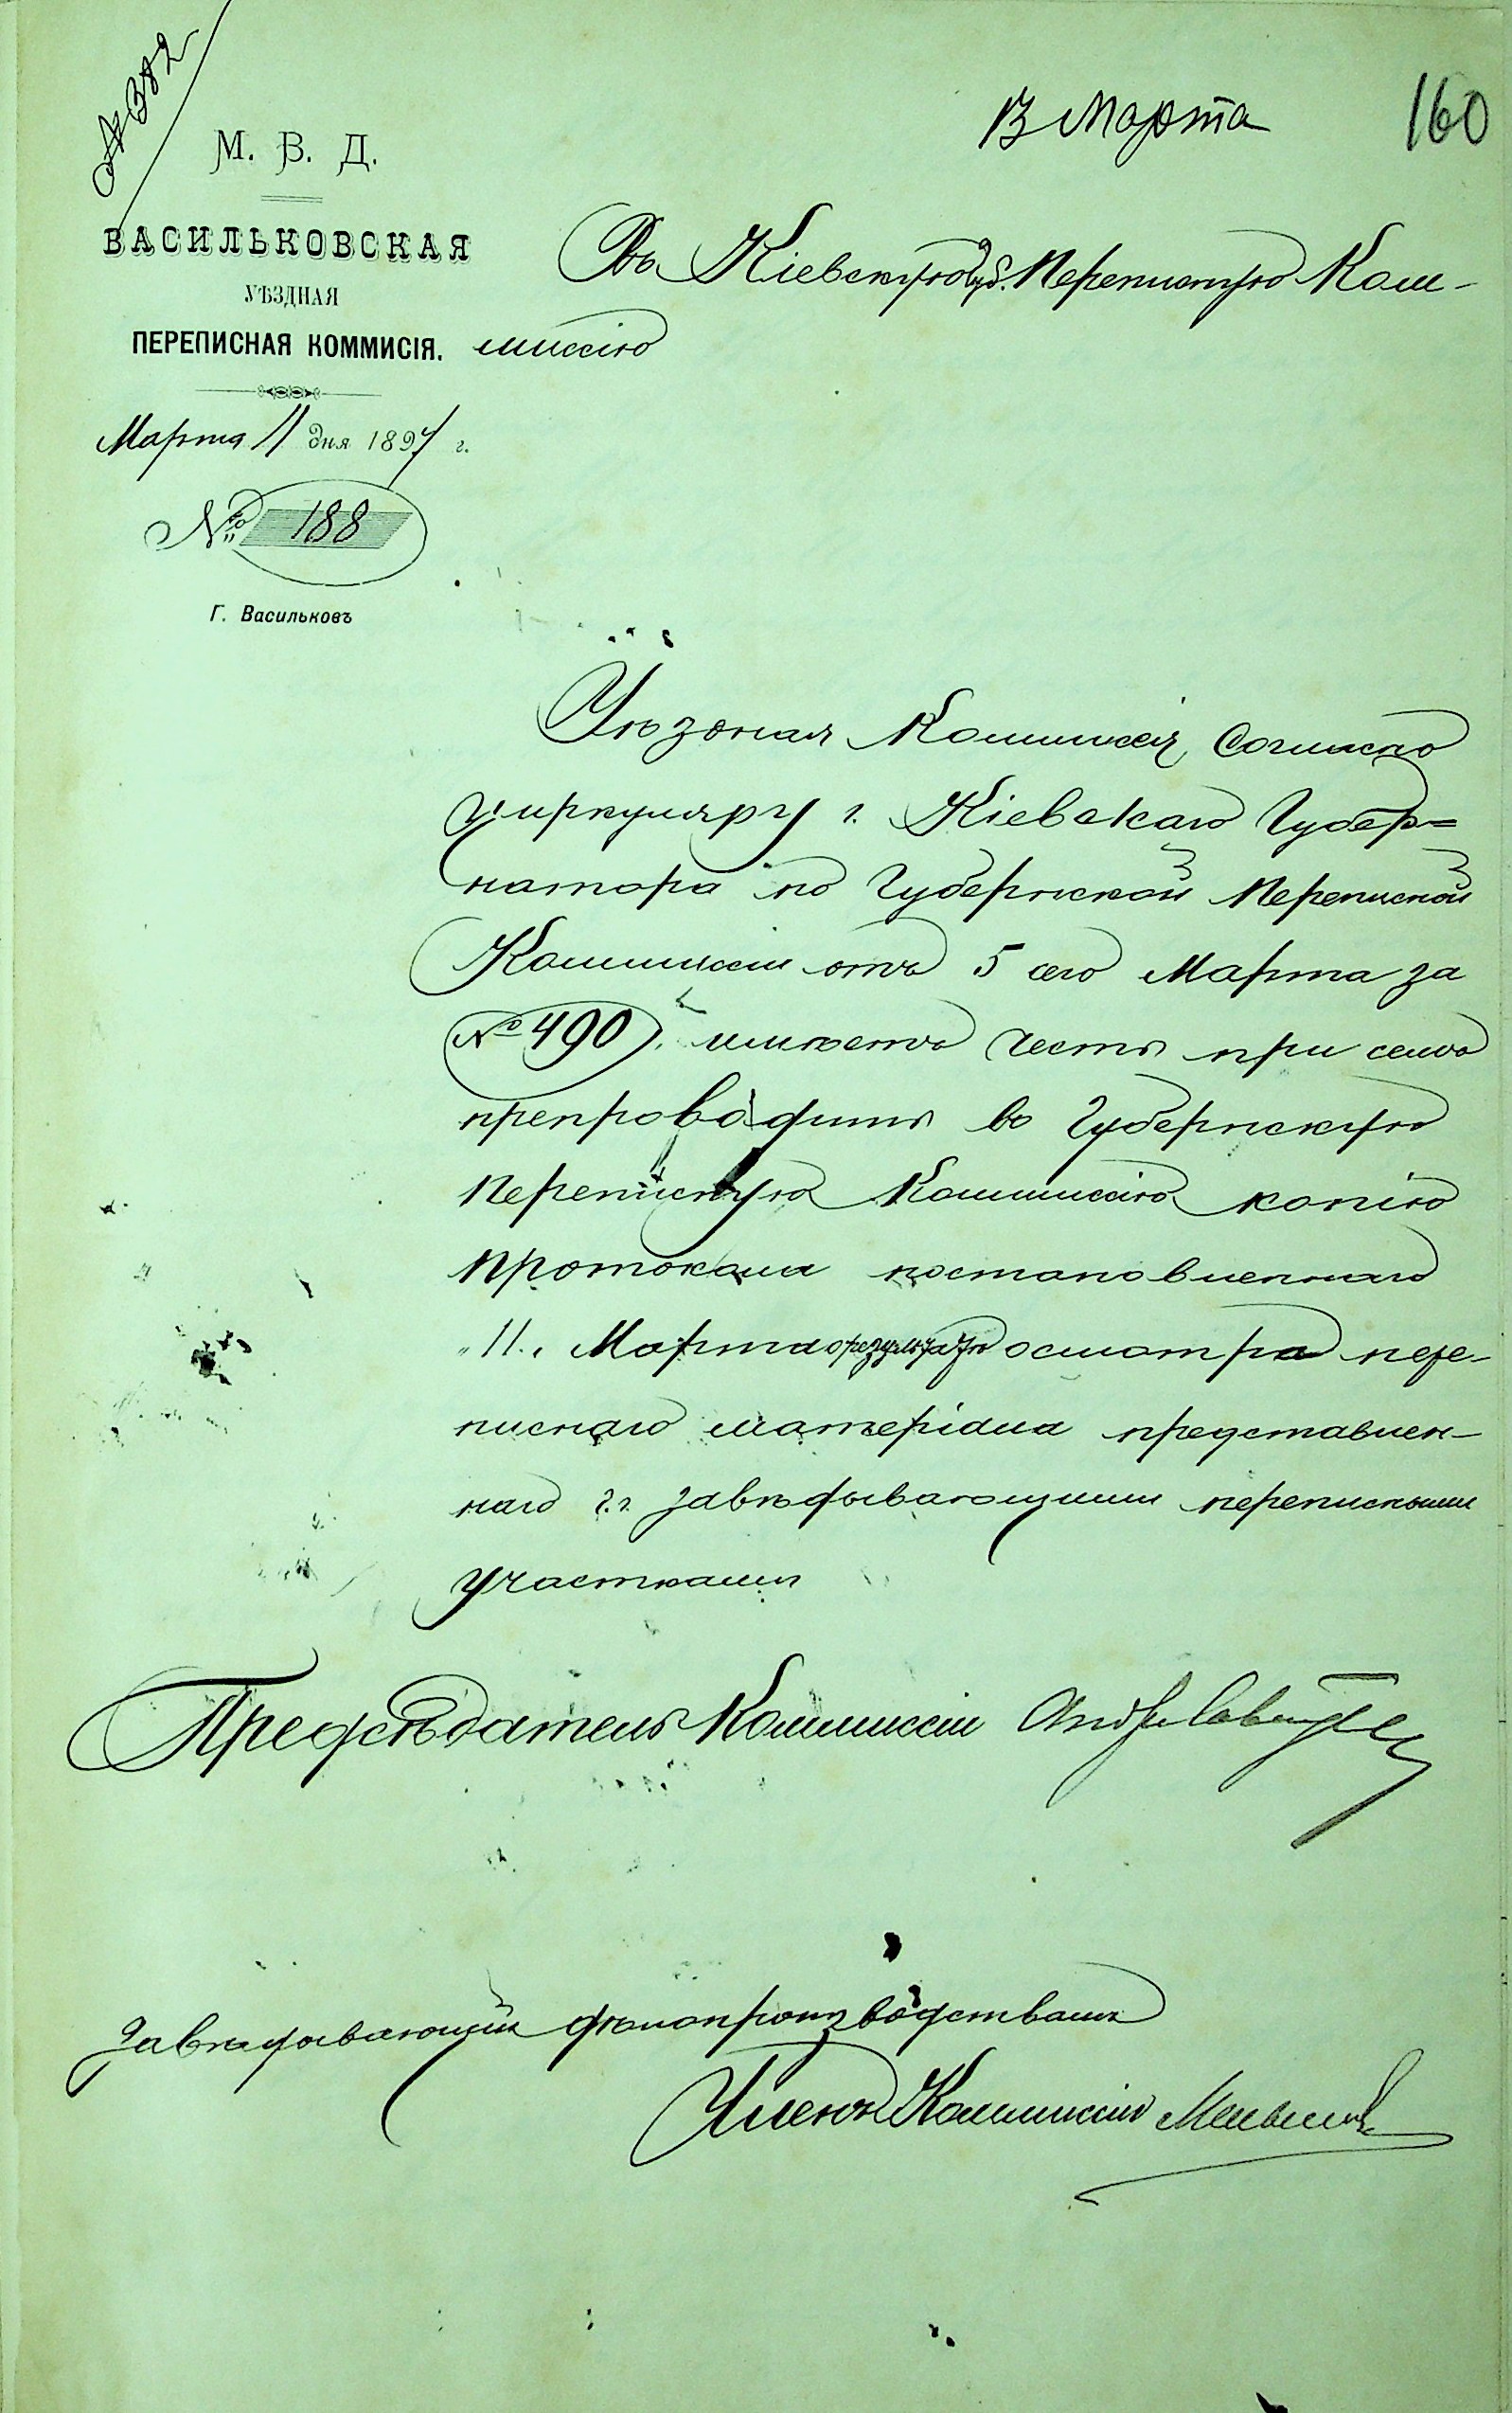 № 382
13 Марта
160
М. В. Д.
ВАСИЛЬКОВСКАЯ
УѢЗДНАЯ
ПЕРЕПИСНАЯ КОММИСІЯ.
Марта 11 дня 1897 г.
№ 188
Г. Васильковъ
Въ Кіевскую Губ. Переписную Ком-
миссію
Уѣздная Коммиссія, согласно
циркуляру г. Кіевскаго Губер=
натора по Губернской Переписной
Коммиссіи отъ 5 сего Марта за
№ 490, имѣетъ честь при семъ
препроводить въ Губернскую
Переписную Коммиссію копію
протокола постановленнаго
"11" Марта о результатѣ осмотра пере-
писнаго матеріала представлен-
наго г.г. завѣдывающими переписными
участками
Предсѣдатель Коммиссіи
Завѣдывающій дѣлопроизводствомъ
Членъ Коммиссіи